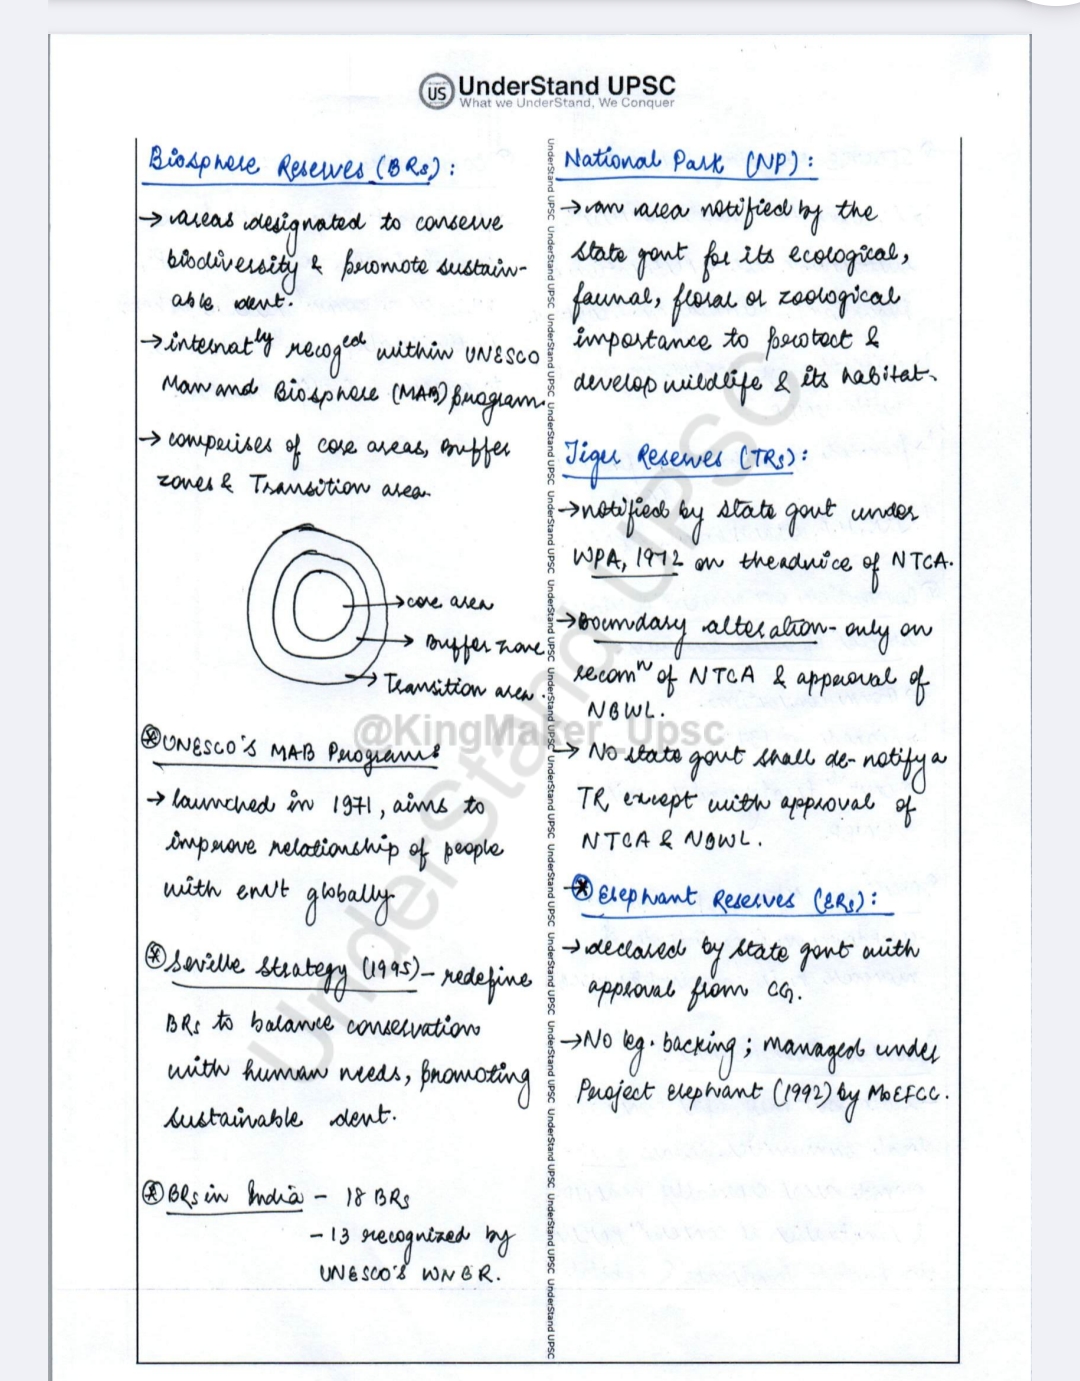 US UnderStand UPSC
What we UnderStand, We Conquer
Biosphere Reserves (BRs) :
→ areas designated to conserve
biodiversity & promote sustain-
able devt.
→ internatly recoged within UNESCO
Man and Biosphere (MAB) program.
→ comprises of core areas, Buffer
zones & Transition area.
→ core area
→ Buffer zone
→ Transition area.
⊛ UNESCO's MAB Program
→ launched in 1971, aims to
improve relationship of people
with envt globally.
⊛ Seville Strategy (1995) - redefine
BRs to balance conservation
with human needs, promoting
sustainable devt.
⊛ BRs in India - 18 BRs
- 13 recognized by
UNESCO's WNBR.
National Park (NP) :
→ an area notified by the
state govt for its ecological,
faunal, floral or zoological
importance to protect &
develop wildlife & its habitat.
Tiger Reserves (TRs) :
→ notified by state govt under
WPA, 1972 on the advice of NTCA.
→ Boundary alteration - only on
recomn of NTCA & approval of
NBWL.
→ No state govt shall de-notify a
TR except with approval of
NTCA & NBWL.
⊛ Elephant Reserves (ERs) :
→ declared by state govt with
approval from CG.
→ No leg. backing ; managed under
Project elephant (1992) by MoEFCC.
@KingMaker_Upsc
UnderStand UPSC
UnderStand UPSC UnderStand UPSC UnderStand UPSC UnderStand UPSC UnderStand UPSC UnderStand UPSC UnderStand UPSC UnderStand UPSC UnderStand UPSC UnderStand UPSC UnderStand UPSC UnderStand UPSC UnderStand UPSC UnderStand UPSC